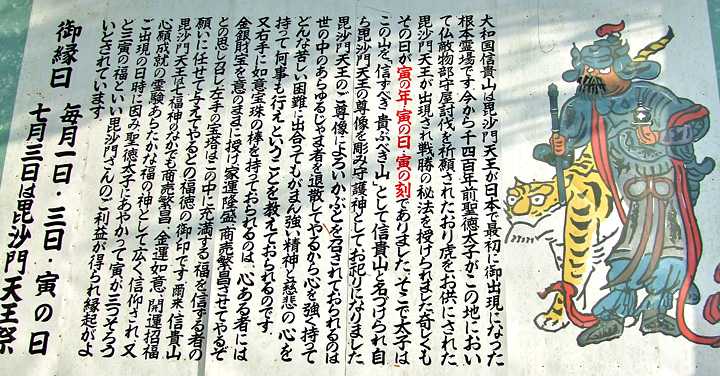 大和国信貴山は毘沙門天王が日本で最初に御出現になった
根本霊場です。今から千四百年前聖徳太子がこの地におい
て仏敵物部守屋討伐を祈願されたおり虎をお供にされた
毘沙門天王が出現され戦勝の秘法を授けられました奇しくも
その日が寅の年・寅の日・寅の刻でありました、そこで太子は
この山を「信ずべき貴ぶべき山」として信貴山と名づけられ自
ら毘沙門天王の尊像を彫み守護神としてお祀りになりました
毘沙門天王のご尊像によろいかぶとを召されておられるのは
世の中のあらゆるじゃま者を退散してやるから心を強く持って
どんな苦しい困難に出合ってもがまん強い精神と慈悲の心を
持って何事も行えということを教えておられるのです。
又右手に如意宝珠の棒を持っておられるのは、心ある者には
金銀財宝を意のままに授け家運隆盛、商売繁昌させてやるぞ
との思し召し左手の宝塔はこの中に充満する福を信ずる者の
願いに任せて与えてやるとの福徳の御印です。爾来信貴山
毘沙門天王は七福神のなかでも商売繁昌、金運如意、開運招福
心願成就の霊験あらたかな福の神として広く信仰され、又
ご出現の日時に因み聖徳太子にあやかって寅が三つそろう
と三寅の福といい毘沙門さんのご利益が得られ縁起がよ
いとされています。
御縁日　毎月一日・三日・寅の日
七月三日は毘沙門天王祭